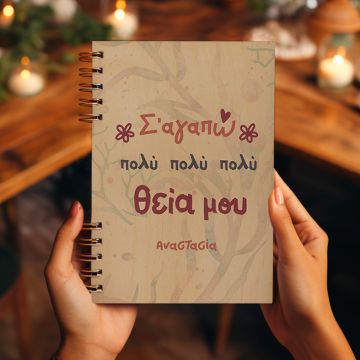 Σ'αγαπώ
πολύ πολύ πολύ
θεία μου
Αναστασία